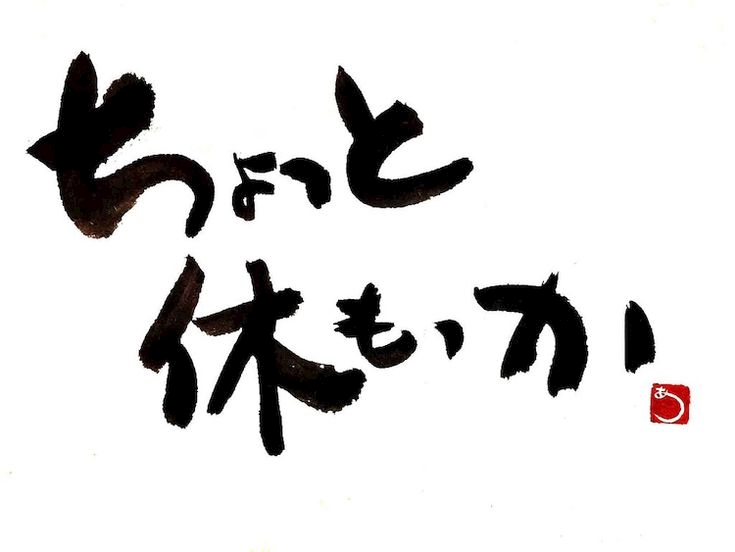 ちょっと
休もうか